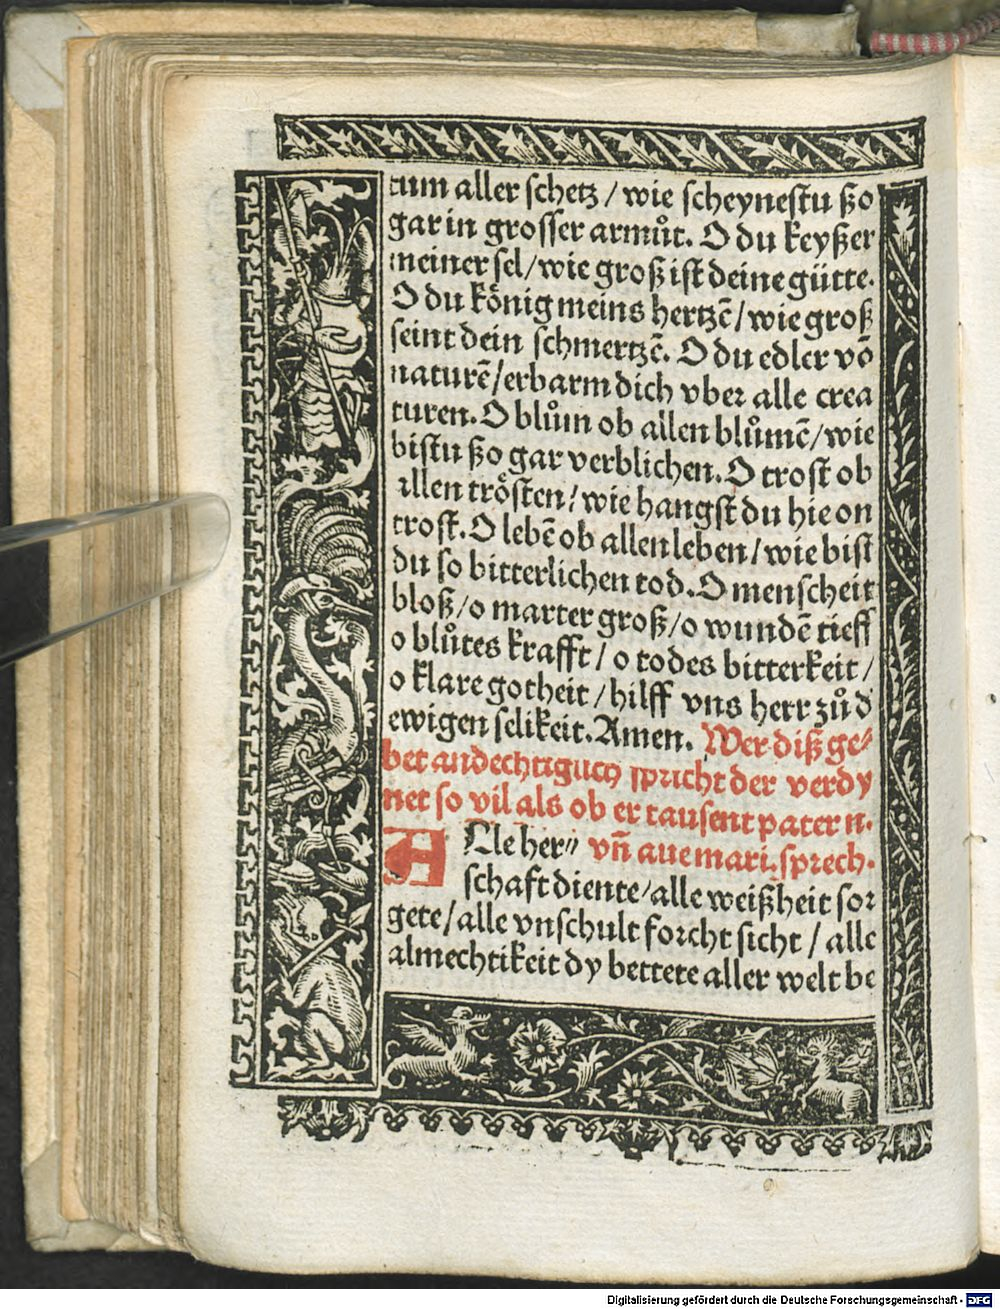 tum aller schetz / wie scheynestu ßo
gar in grosser armůt. O du keyßer
meiner sel/wie groß ist deine gütte.
O du könig meins hertzē/wie groß
seint dein schmertzē. O du edler vō
naturē/erbarm dich vber alle crea
turen. O blům ob allen blůmē/wie
bistu ßo gar verblichen. O trost ob
allen trösten/wie hangst du hie on
trost. O lebē ob allen leben/wie bist
du so bitterlichen tod. O menscheit
bloß/o marter groß/o wundē tieff
o blůtes krafft/o todes bitterkeit/
o klare gotheit/hilff vns herr zů d'
ewigen selikeit. Amen. Wer diß ge⸗
bet andechtiguch spricht der verdy
net so vil als ob er tausent pater n.
ALle her⸗ vñ aue mari. sprech.
schaft diente/alle weißheit sor
gete/alle vnschult forcht sicht/alle
almechtikeit dy bettete aller welt be
Digitalisierung gefördert durch die Deutsche Forschungsgemeinschaft - DFG